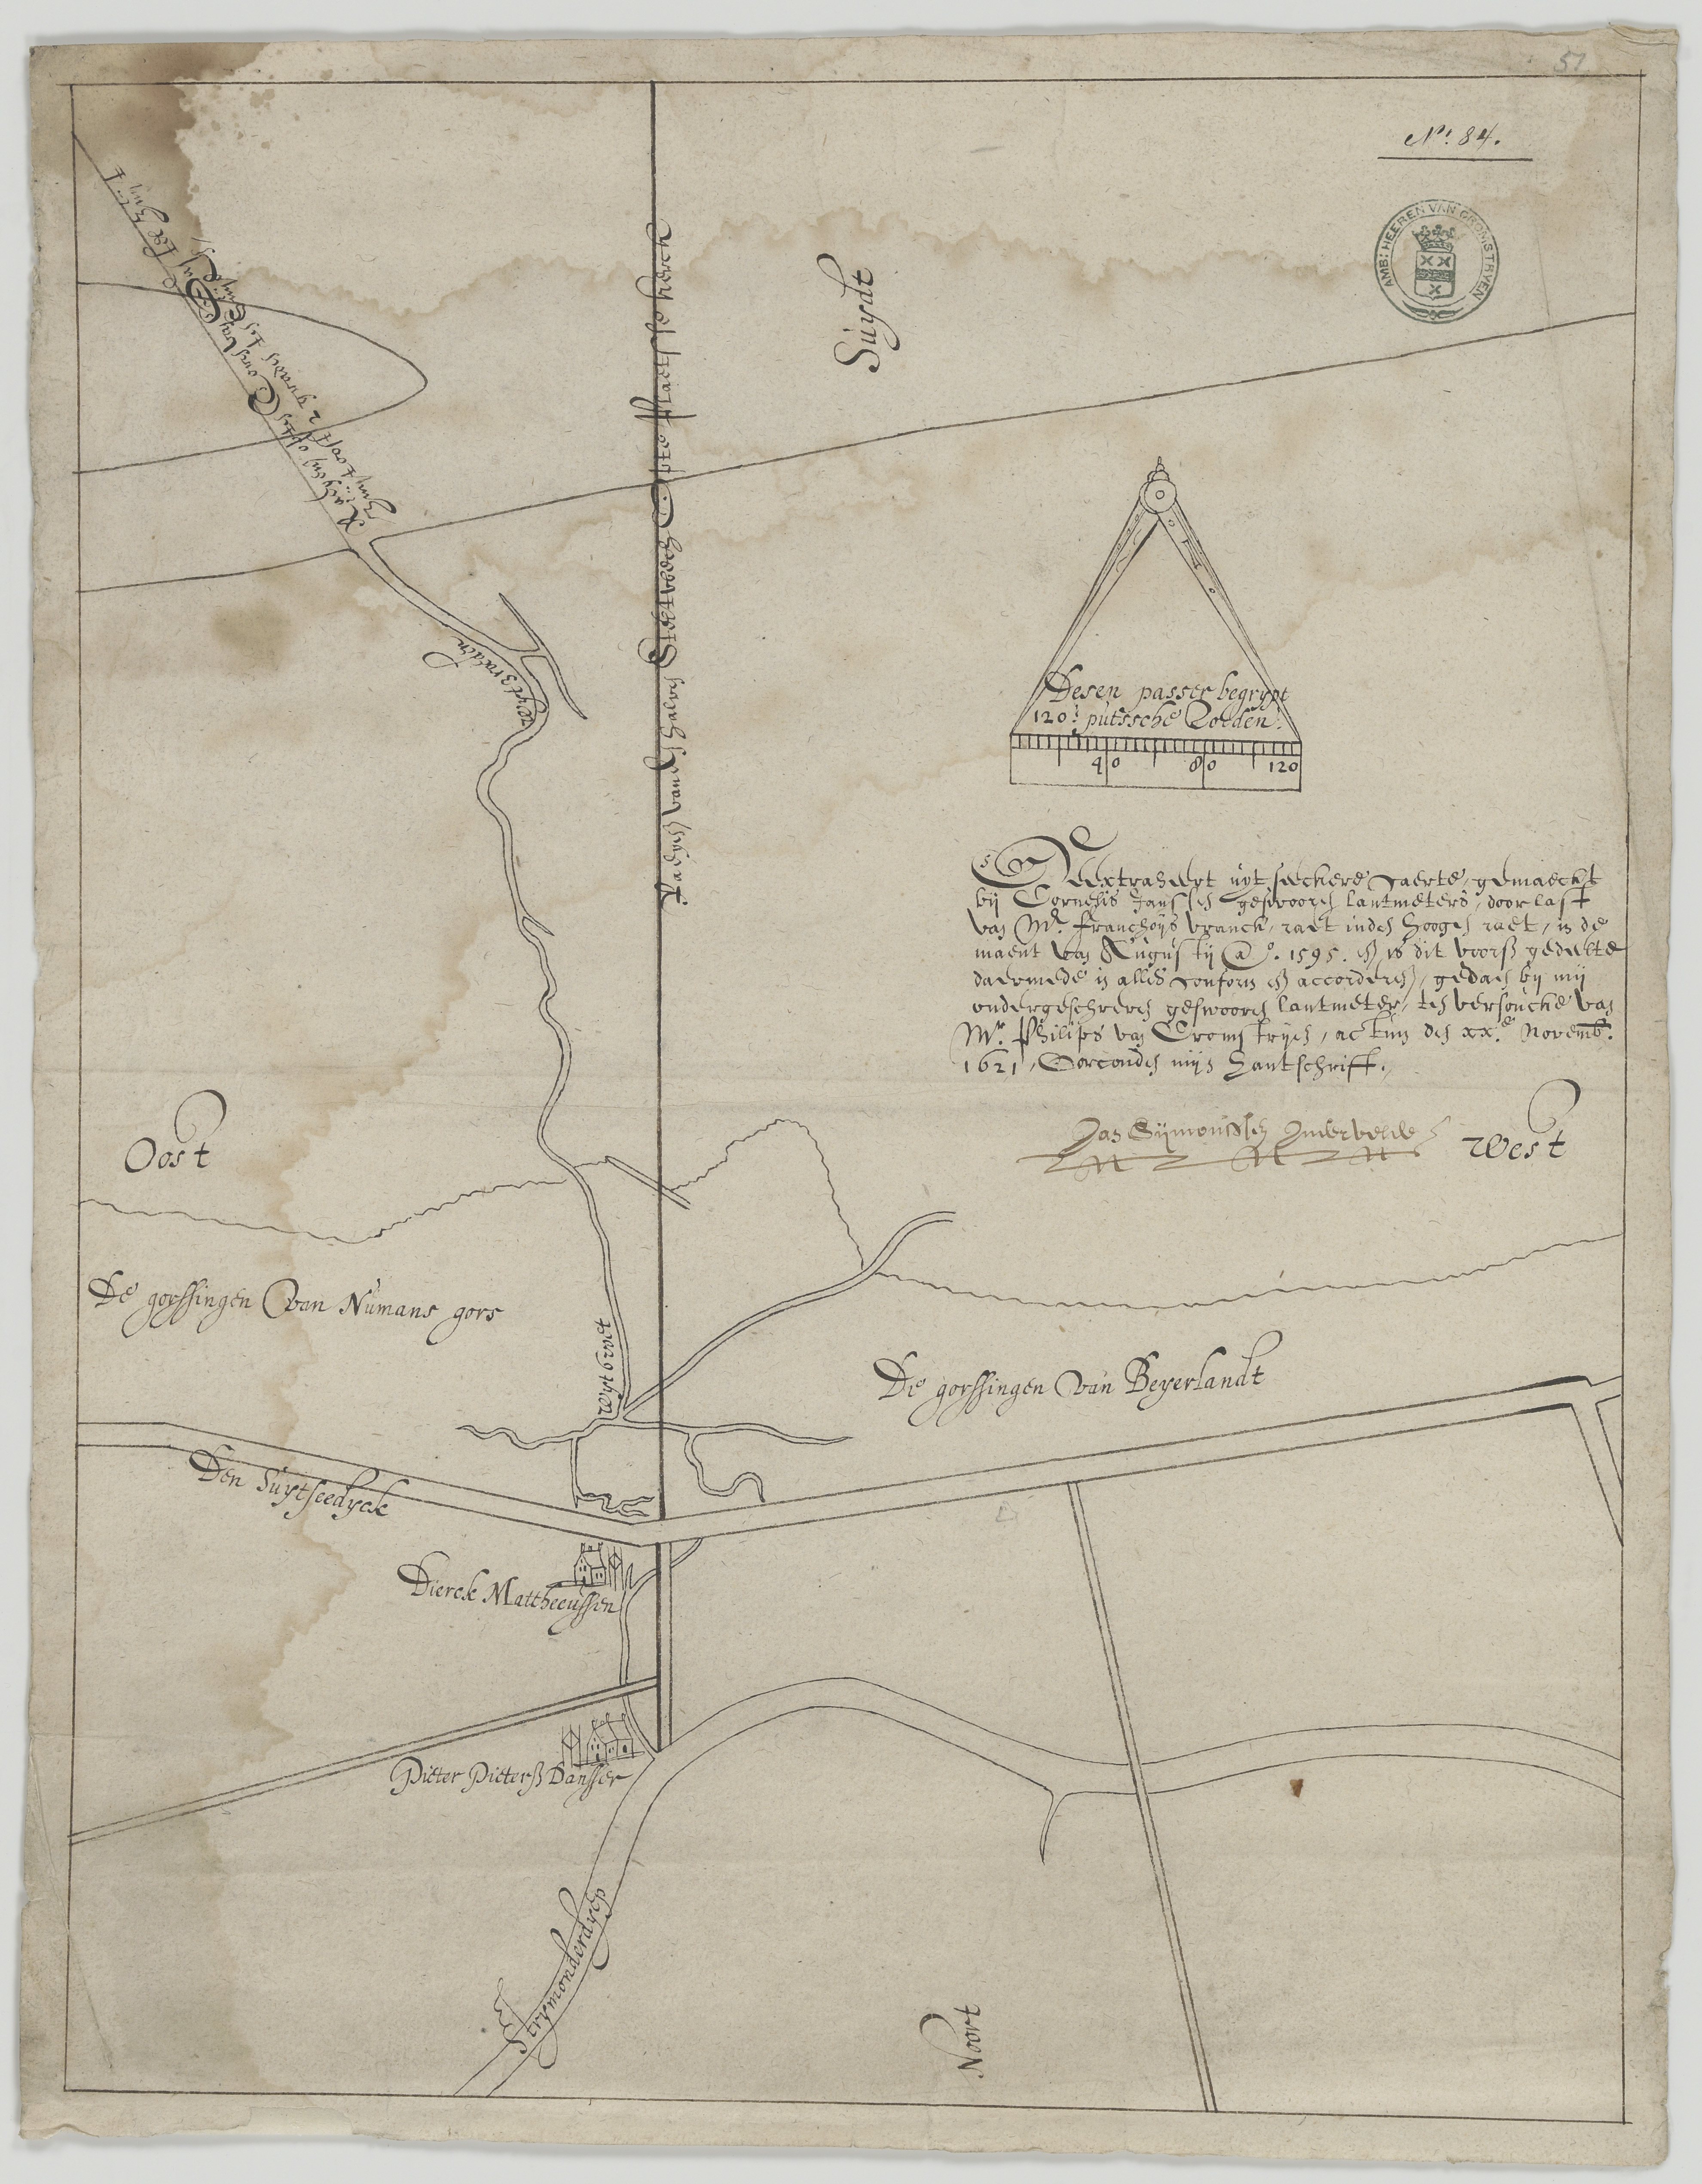 51
N.º 84.
AMB: HEEREN VAN CROMSTRYEN
Suydt
Desen passer begrypt
120: putsche Roeden:
40 80 120
Geextraheert uyt seeckere caerte, gemaeckt
bij Cornelis Janssen gesworen lantmeters, door last
van Mr. Franchoijs Vranck, raet inden hoogen raet, in de
maent van Augustij Aº. 1595. en is dit voorß gedeelte
daermede in alles conform en accorderen, gedaen bij mij
ondergeschreven gesworen lantmeter, ten versoucke van
Mr. Philips van Cromstryen, actum den xx.e Novemb.
1621, Oorconden mijn hantschrift.
Jan Sijmonssen
West
Oost
De gorssingen van Numans gors
wyt
De gorssingen van Beyerlandt
Den Suytseedyck
Dierck Mattheeussen
Pieter Pieterß Dansser
Strymonderdyep
Noort